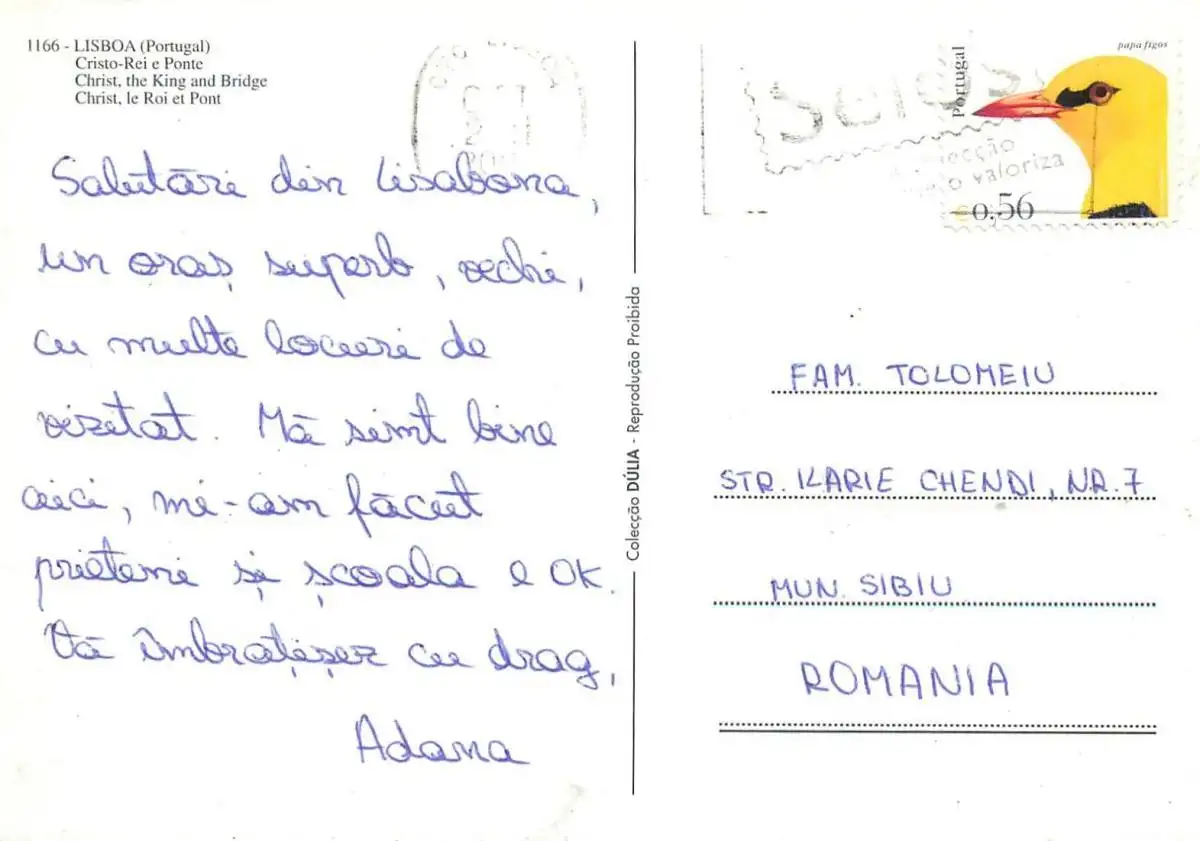 1166 - LISBOA (Portugal)
Cristo-Rei e Ponte
Christ, the King and Bridge
Christ, le Roi et Pont
Salutări din Lisabona,
un oraș superb, vechi,
cu multe locuri de
vizitat. Mă simt bine
aici, mi-am făcut
prieteni și școala e OK.
Vă îmbrățișez cu drag,
Adana
Colecção DÚLIA - Reprodução Proibida
Selos
colecção
valoriza
Portugal
papa figos
€0,56
FAM. TOLOMEIU
STR. ILARIE CHENDI, NR. 7
MUN. SIBIU
ROMANIA